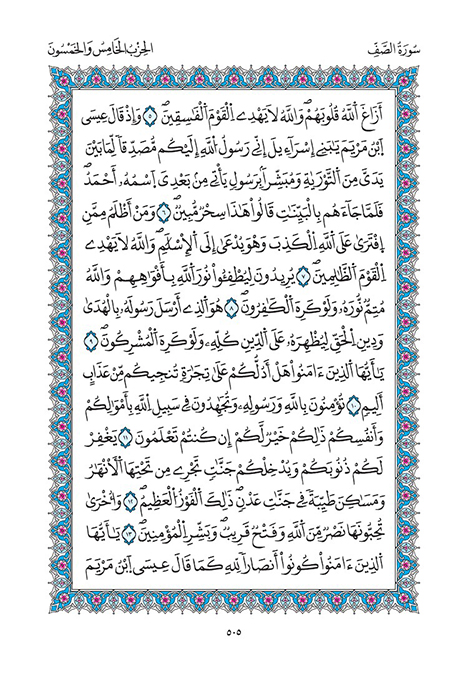 سُورَةُ الصَّفِّ
الحِزْبُ الخَامِسُ وَالخَمْسُونَ
أَزَاغَ اَللَّهُ قُلُوبَهُمْۖ وَاللَّهُ لَا يَهْدِے اِلْقَوْمَ اَلْفَٰسِقِينَۖ ٥ وَإِذْ قَالَ عِيسَى
اَبْنُ مَرْيَمَ يَٰبَنِے إِسْرَآءِيلَ إِنِّے رَسُولُ اُللَّهِ إِلَيْكُم مُّصَدِّقاٗ لِّمَا بَيْنَ
يَدَيَّ مِنَ اَلتَّوْر۪يٰةِ وَمُبَشِّراَۢ بِرَسُولٖ يَأْتِے مِنۢ بَعْدِيَ اَسْمُهُۥٓ أَحْمَدُۖ
فَلَمَّا جَآءَهُم بِالْبَيِّنَٰتِ قَالُواْ هَٰذَا سِحْرٞ مُّبِينٞۖ ٦ وَمَنْ أَظْلَمُ مِمَّنِ
اِفْتَر۪يٰ عَلَى اَللَّهِ اِلْكَذِبَ وَهُوَ يُدْع۪يٰٓ إِلَى اَلْإِسْلَٰمِۖ وَاللَّهُ لَا يَهْدِے
اِلْقَوْمَ اَلظَّٰلِمِينَۖ ٧ يُرِيدُونَ لِيُطْفِـُٔواْ نُورَ اَللَّهِ بِأَفْوَٰهِهِمْ وَاللَّهُ
مُتِمّٞ نُورَهُۥ وَلَوْ كَرِهَ اَلْكَٰفِرُونَۖ ٨ هُوَ اَلذِےٓ أَرْسَلَ رَسُولَهُۥ بِالْهُد۪يٰ
وَدِينِ اِلْحَقِّ لِيُظْهِرَهُۥ عَلَى اَلدِّينِ كُلِّهِۦ وَلَوْ كَرِهَ اَلْمُشْرِكُونَۖ ٩
يَٰٓأَيُّهَا اَلذِينَ ءَامَنُواْ هَلْ أَدُلُّكُمْ عَلَىٰ تِجَٰرَةٖ تُنجِيكُم مِّنْ عَذَابٍ
أَلِيمٖۖ ١٠ تُؤْمِنُونَ بِاللَّهِ وَرَسُولِهِۦ وَتُجَٰهِدُونَ فِے سَبِيلِ اِللَّهِ بِأَمْوَٰلِكُمْ
وَأَنفُسِكُمْۖ ذَٰلِكُمْ خَيْرٞ لَّكُمْ إِن كُنتُمْ تَعْلَمُونَۖ ١١ يَغْفِرْ
لَكُمْ ذُنُوبَكُمْ وَيُدْخِلْكُمْ جَنَّٰتٖ تَجْرِے مِن تَحْتِهَا اَلْأَنْهَٰرُ
وَمَسَٰكِنَ طَيِّبَةٗ فِے جَنَّٰتِ عَدْنٖۖ ذَٰلِكَ اَلْفَوْزُ اُلْعَظِيمُۖ ١٢ وَأُخْر۪يٰ
تُحِبُّونَهَا نَصْرٞ مِّنَ اَللَّهِ وَفَتْحٞ قَرِيبٞۖ وَبَشِّرِ اِلْمُؤْمِنِينَۖ ١٣ يَٰٓأَيُّهَا
اَلذِينَ ءَامَنُواْ كُونُوٓاْ أَنصَاراٗ لِّلهِ كَمَا قَالَ عِيسَى اَبْنُ مَرْيَمَ
٥٠٥